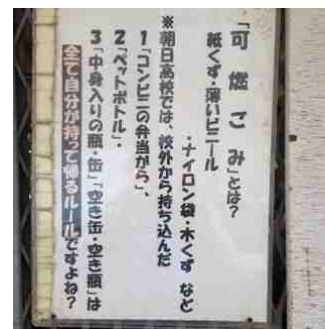 「可燃ごみ」とは?
紙くず・薄いビニール
・ナイロン袋・木くず など
※朝日高校では、校外から持ち込んだ
1「コンビニの弁当がら」、
2「ペットボトル」・
3「中身入りの瓶・缶」「空き缶・空き瓶」は
全て自分が持って帰るルールですよね?